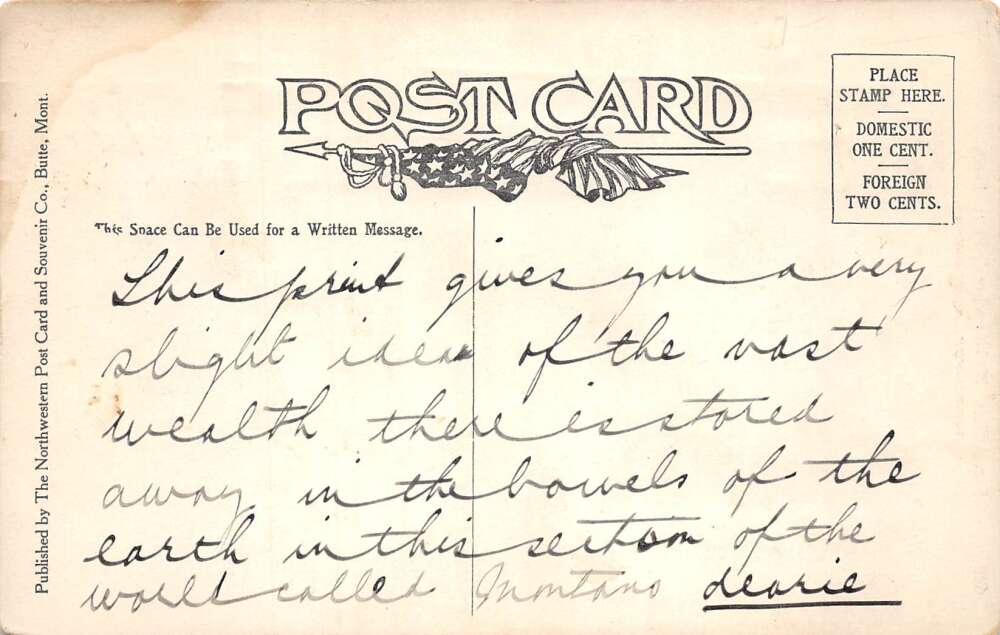 POST CARD
PLACE
STAMP HERE.
DOMESTIC
ONE CENT.
FOREIGN
TWO CENTS.
This Space Can Be Used for a Written Message.
This print gives you a very
slight idea of the vast
wealth there is stored
away in the bowels of the
earth in this section of the
world called Montana dearie
Published by The Northwestern Post Card and Souvenir Co., Butte, Mont.